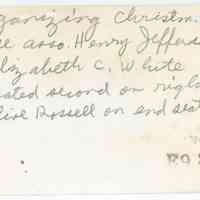 ganizing Christm
e asso. Henry Jeffers
lizabeth C. White
ated second on righ
live Russell on end seat